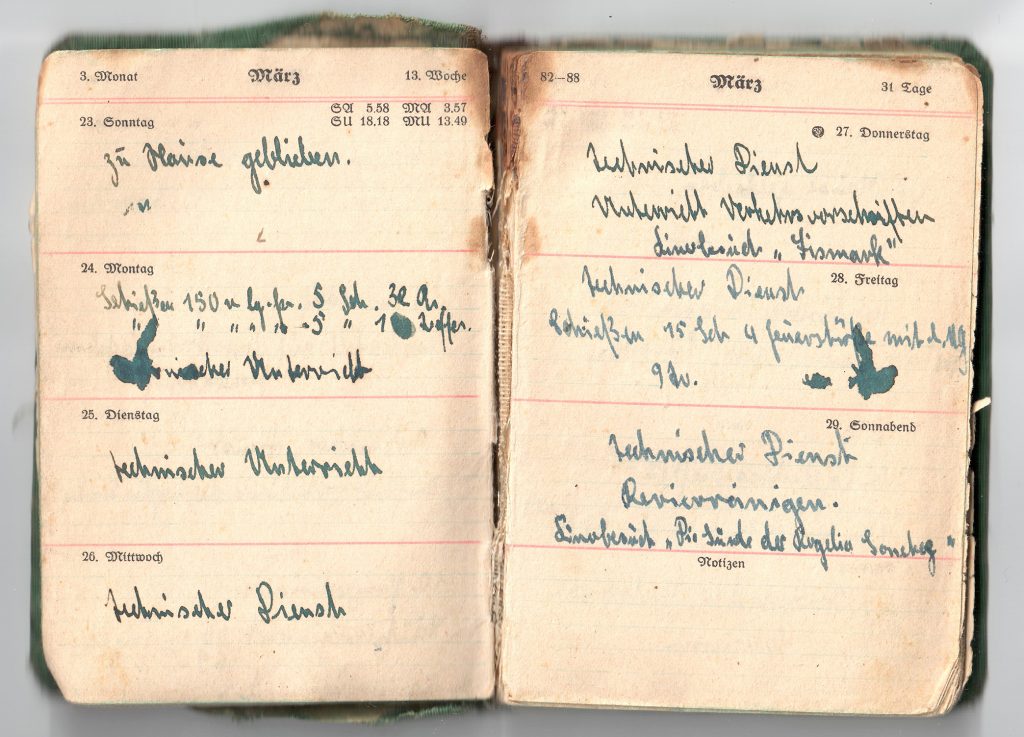 3. Monat März 13. Woche
SA 5.58 MA 3.57
23. Sonntag SU 18.18 MU 13.49
zu Hause geblieben.
24. Montag
Schießen 150 m lg. fr. 5 Sch. 32 Rg.
" " " " " 5 " 1 Treffer.
Unterricht
25. Dienstag
technischer Unterricht
26. Mittwoch
technischer Dienst
82—88 März 31 Tage
27. Donnerstag
technischer Dienst
Unterricht Verkehrsvorschriften
Kinobesuch „Bismark"
28. Freitag
technischer Dienst
Schießen 15 Sch 4 Feuerstöße mit d. MG
9
29. Sonnabend
technischer Dienst
Revierreinigen.
Kinobesuch „Die Sünde der Rogelia Sanchez"
Notizen